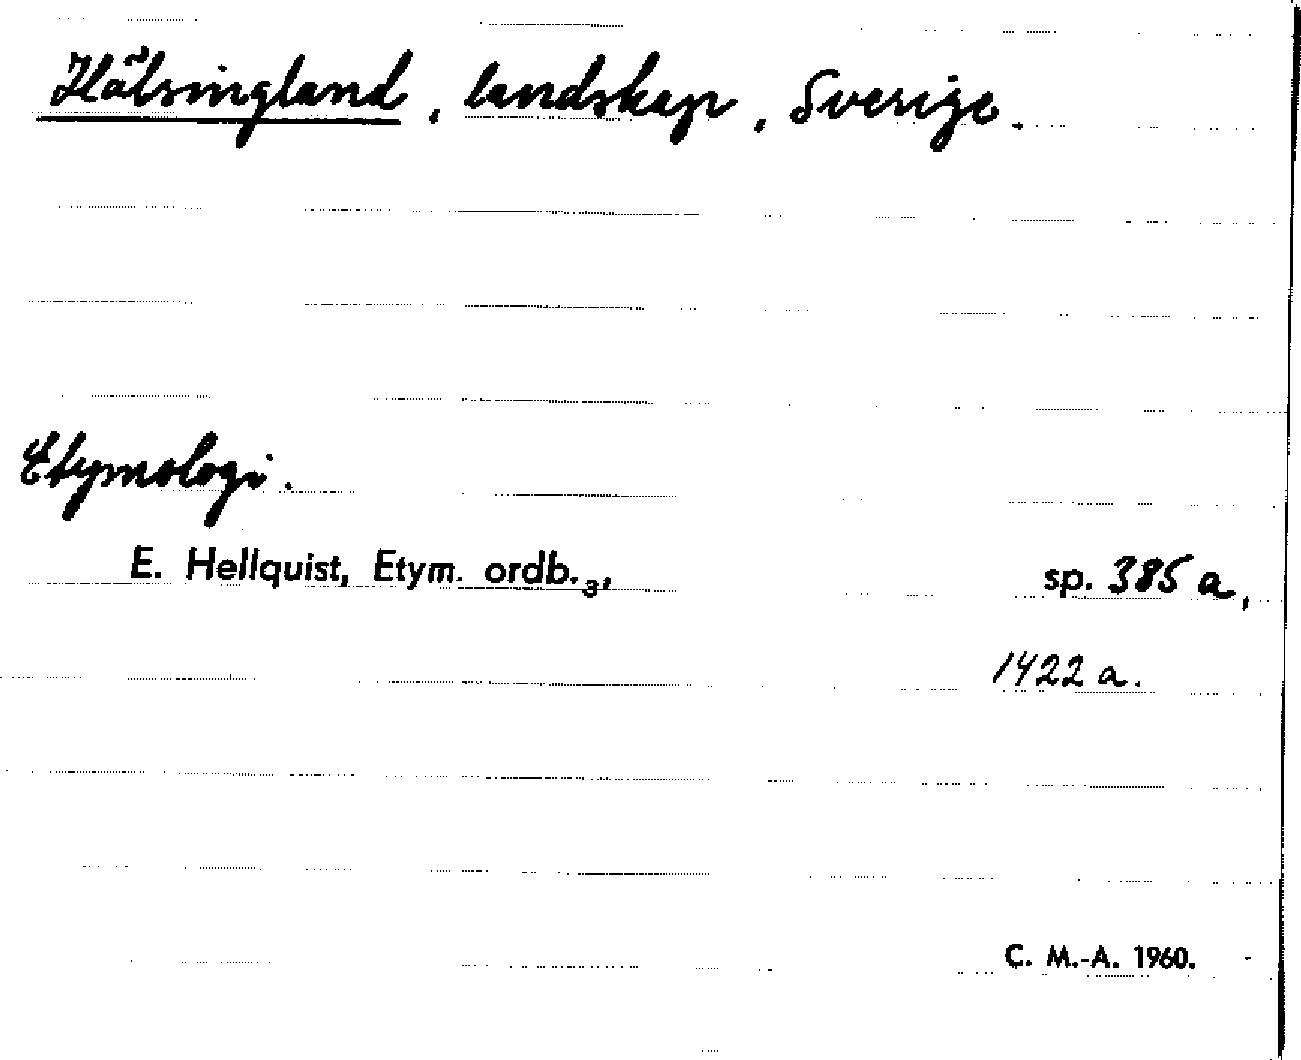 Hälsingland, landskap, Sverige.
Etymologi.
E. Hellquist, Etym. ordb.₃, sp. 385 a,
1422 a.
C. M.-A. 1960.